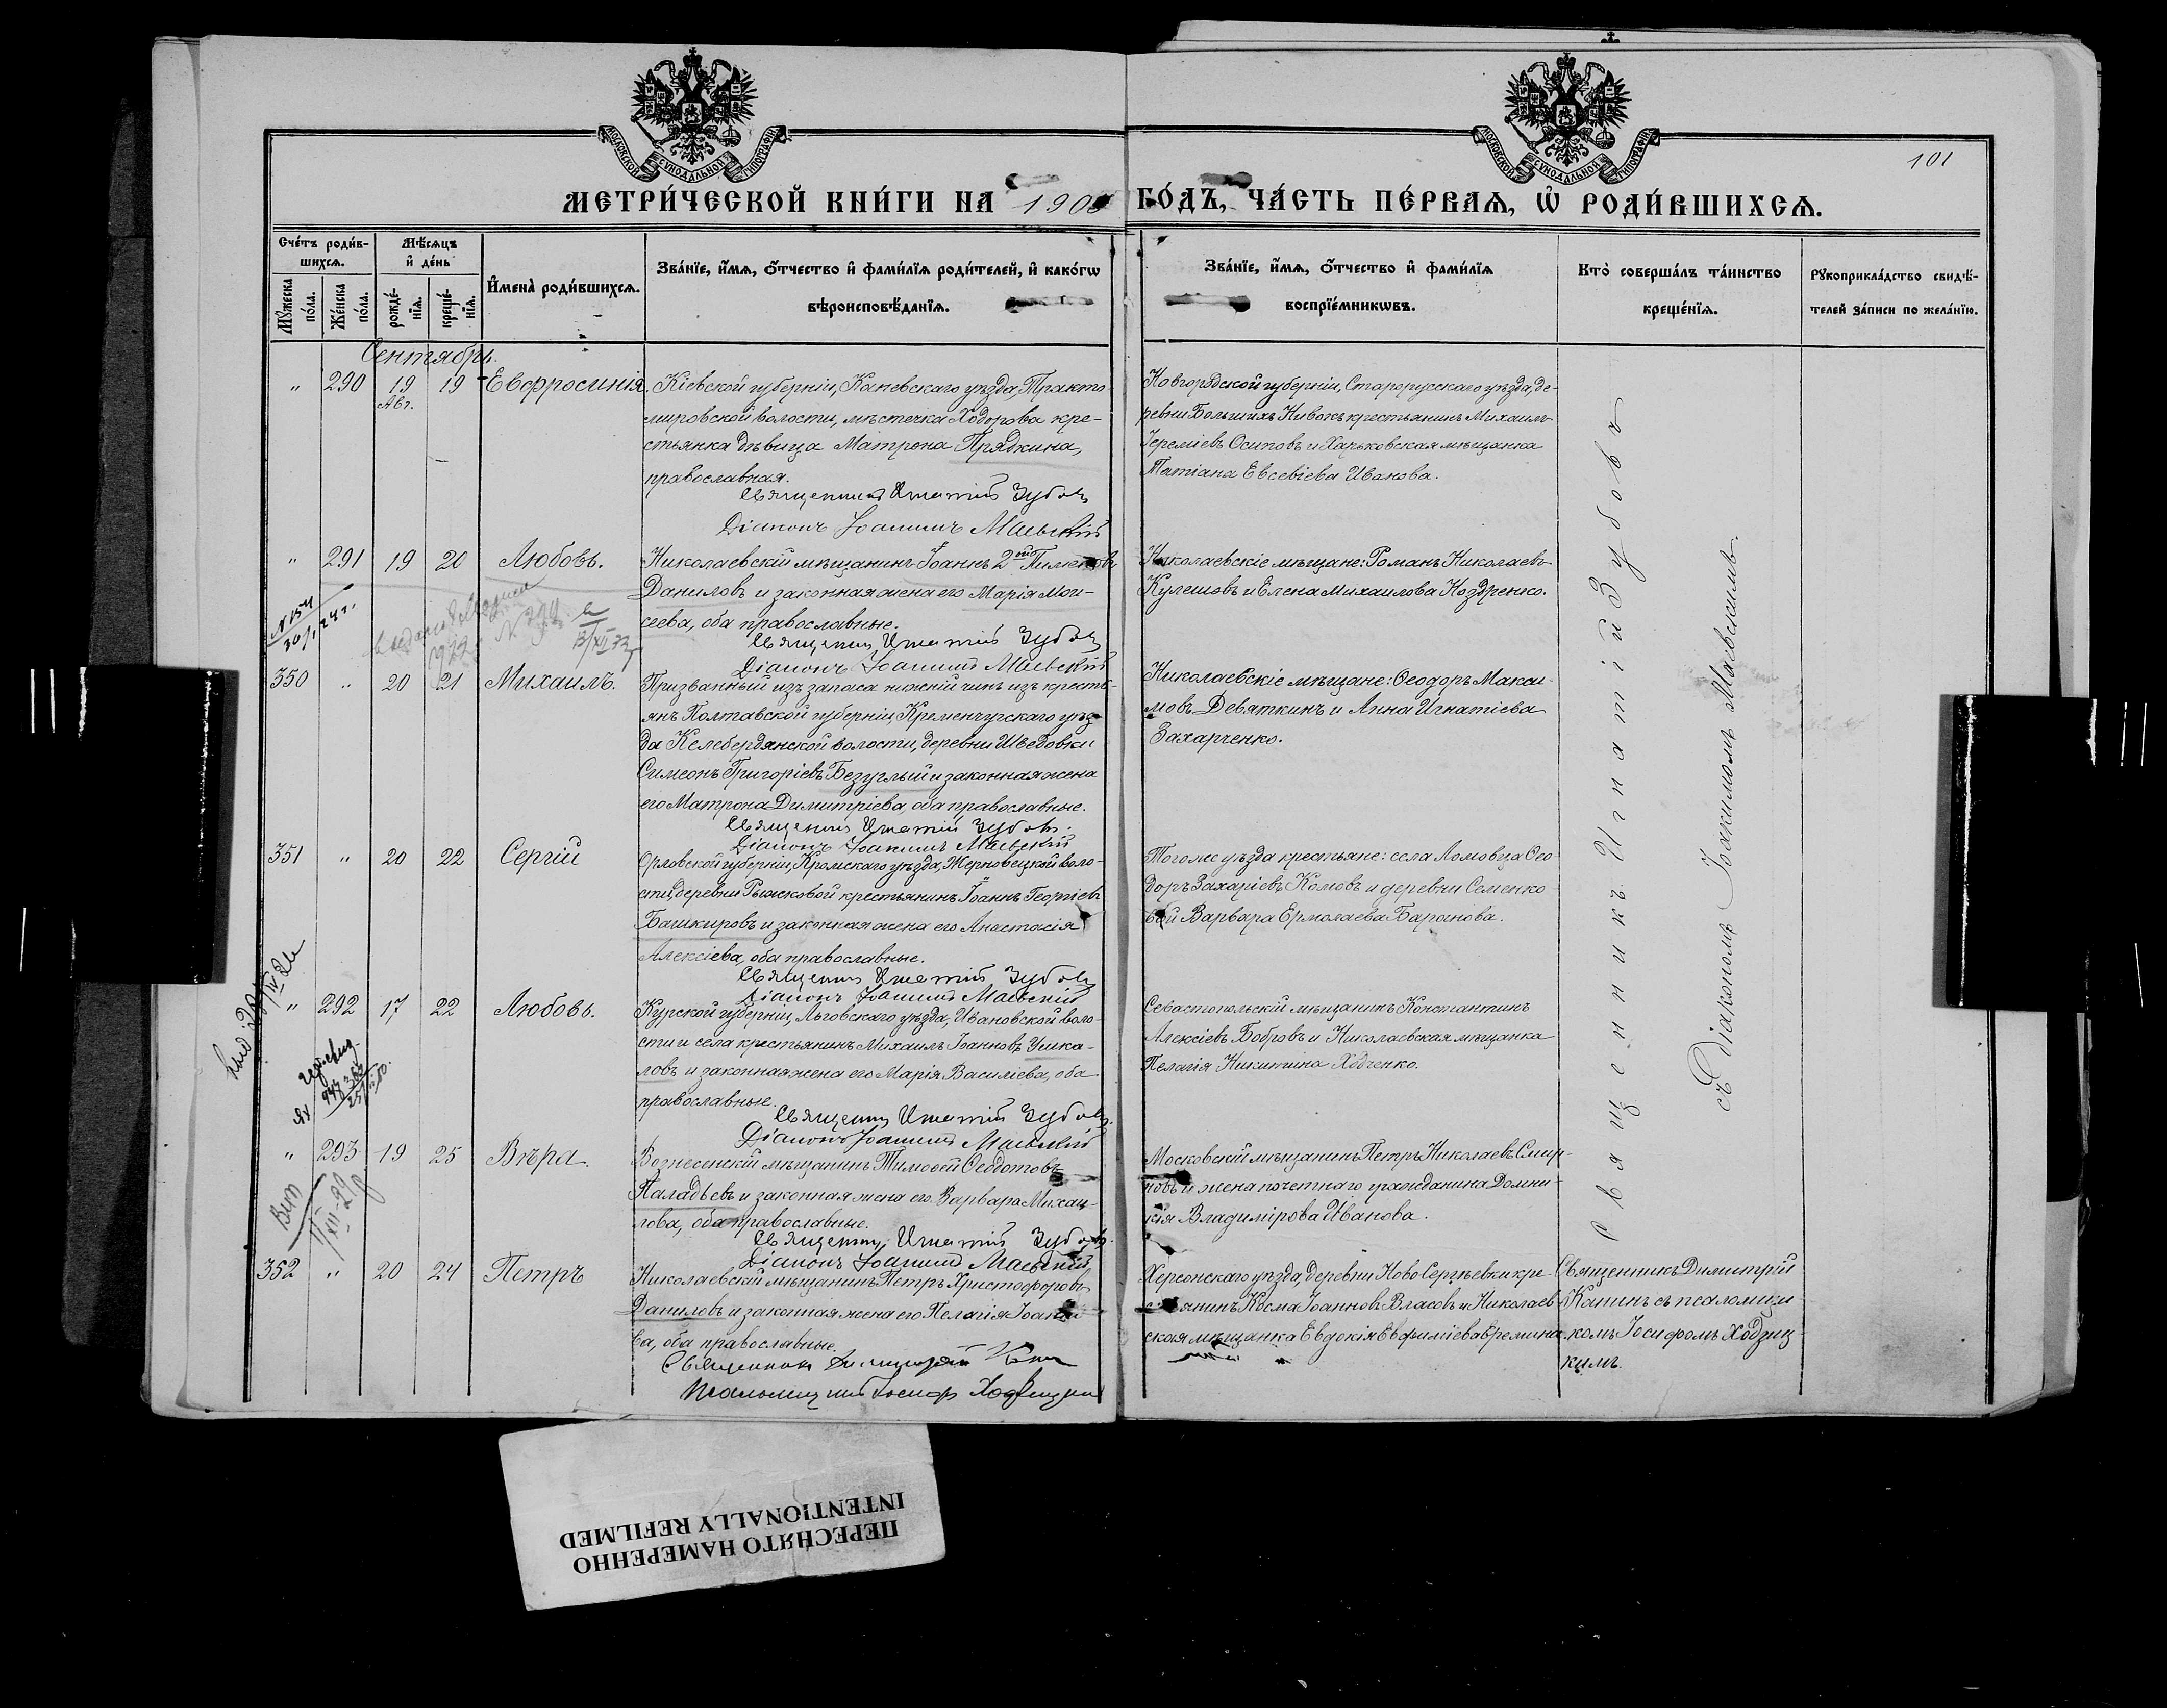 МОСКОВСКОЙ СУНОДАЛЬНОЙ ТИПОГРАФІИ
МОСКОВСКОЙ СУНОДАЛЬНОЙ ТИПОГРАФІИ
101
МЕТРИ́ЧЕСКОЙ КНИ́ГИ НА 190 ГО́ДЪ, ЧА́СТЬ ПЕ́РВАЯ, Ѡ҆ РОДИ́ВШИХСЯ.
Сче́тъ роди́в-
шихся.
Мꙋжеска
по́ла.
Же́нска
по́ла.
Мѣ́сяцъ
и҆ де́нь
рожде́-
нїя.
креще́-
нїя.
И҆мена̀ роди́вшихся.
Зва́нїе, и҆́мя, ѻ҆́тчество и҆ фами́лїя роди́телей, и҆ како́гѡ
вѣроисповѣ́данїя.
Зва́нїе, и҆́мя, ѻ҆́тчество и҆ фами́лїя
воспрїе́мникѡвъ.
Кто̀ соверша́лъ та́инство
креще́нїя.
Рꙋкоприкла́дство свидѣ́-
телей за́писи по жела́нїю.
Сентябрь.
" 290 19 19 Евфросинія.
Авг.
Кіевской губерніи, Каневскаго уѣзда, Тракто-
мировской волости, мѣстечка Ходорова кре-
стьянка дѣвица Матрона Прядкина,
православная.
Священникъ Игнатій Зубовъ
Діаконъ Іоакимъ Маевскій
Новгородской губерніи, Старорусскаго уѣзда, де-
ревни Большихъ Нивокъ крестьянинъ Михаилъ
Іереміевъ Осиповъ и Харьковская мѣщанка
Татіана Евсевіева Иванова.
" 291 19 20 Любовь.
Николаевскій мѣщанинъ Іоаннъ 2ой
Даниловъ и законная жена его Марія Мои-
сеева, оба православные.
Священникъ Игнатій Зубовъ
Діаконъ Іоакимъ Маевскій
Николаевскіе мѣщане: Романъ Николаевъ
Кулешовъ и Елена Михаилова Ноздренко.
N 154
30/I 24 г.
1922 N 399
13/XI 32
350 " 20 21 Михаилъ.
Призванный изъ запаса нижній чинъ изъ кресть-
янъ Полтавской губерніи, Кременчугскаго уѣз-
да Келебердянской волости, деревни Шведовки
Симеонъ Григоріевъ Безуглый и законная жена
его Матрона Димитріева, оба православные.
Священникъ Игнатій Зубовъ.
Діаконъ Іоакимъ Маевскій
Николаевскіе мѣщане: Ѳеодоръ Макси-
мовъ Девяткинъ и Анна Игнатіева
Захарченко.
351 " 20 22 Сергій
Орловской губерніи, Кромскаго уѣзда, Жерновецкой воло-
сти, деревни Рыжковой крестьянинъ Іоаннъ Георгіевъ
Башкировъ и законная жена его Анастасія
Алексіева, оба православные.
Священникъ Игнатій Зубовъ
Діаконъ Іоакимъ Маевскій
Тогоже уѣзда крестьяне: села Ломовца Ѳео-
доръ Захаріевъ Комовъ и деревни Семенко-
вой Варвара Ермолаева Баранова.
" 292 17 22 Любовь.
Курской губерніи, Льговскаго уѣзда, Ивановской воло-
сти и села крестьянинъ Михаилъ Іоанновъ Ушка-
ловъ и законная жена его Марія Василіева, оба
православные.
Священникъ Игнатій Зубовъ.
Діаконъ Іоакимъ Маевскій
Севастопольскій мѣщанинъ Константинъ
Алексіевъ Бобровъ и Николаевская мѣщанка
Пелагія Никитина Ходченко.
" 293 19 25 Вѣра.
Вознесенскій мѣщанинъ Тимоѳей Ѳеодотовъ
Паладьевъ и законная жена его Варвара Михаи-
лова, оба православные.
Священникъ Игнатій Зубовъ.
Діаконъ Іоакимъ Маевскій
Московскій мѣщанинъ Петръ Николаевъ Смир-
новъ и жена почетнаго гражданина Домни-
кія Владимірова Иванова.
352 " 20 24 Петръ
Николаевскій мѣщанинъ Петръ Христофоровъ
Даниловъ и законная жена его Пелагія Іоанно-
ва, оба православные.
Священникъ Димитрій Канинъ
Псаломщикъ Іосифъ Ходзицкій
Херсонскаго уѣзда, деревни Ново Сергѣевки кре-
стьянинъ Косма Іоанновъ Власовъ и Николаев-
ская мѣщанка Евдокія Евѳиміева Еремина.
Священникъ Димитрій
Канинъ съ псаломщи-
комъ Іосифомъ Ходзиц-
кимъ.
Священникъ Игнатій Зубовъ
съ діакономъ Іоакимомъ Маевскимъ.
ПЕРЕСНЯТО НАМЕРЕННО
INTENTIONALLY REFILMED